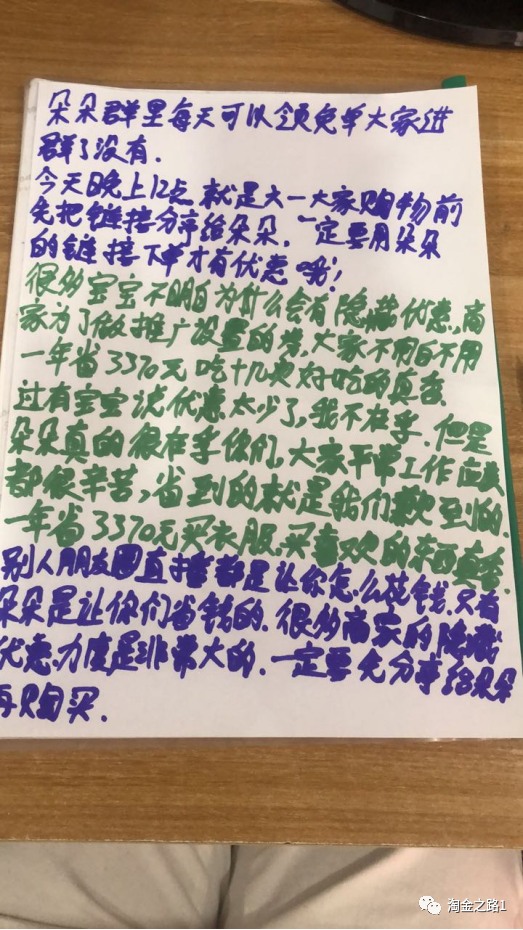 朵朵群里每天可以领免单大家进
群了没有.
今天晚上12点 就是大一大家购物前
先把链接分享给朵朵. 一定要用朵朵
的链接下单才有优惠哦!
很多宝宝不明白为什么会有隐藏优惠,商
家为了做推广设置的券,大家不用白不用
一年省3370元吃十几 好吃的真香.
过有宝宝说优惠太少了,我不在乎.但是
朵朵真的很在乎你们,大家平常工作
都很辛苦,省到的就是我们 到的.
一年省3370元买衣服.买喜欢的东西真香.
别人朋友圈直播都是让你怎么花钱.只有
朵朵是让你们省钱的.很多商家的隐藏
优惠力度是非常大的.一定要先分享给朵朵
再购买.
淘金之路1